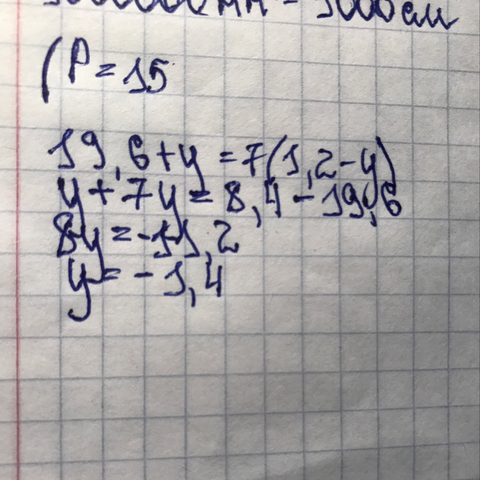 000000мм - 1000см
(P = 15
19,6 + y = 7(1,2 - y)
y + 7y = 8,4 - 19,6
8y = -11,2
y = -1,4